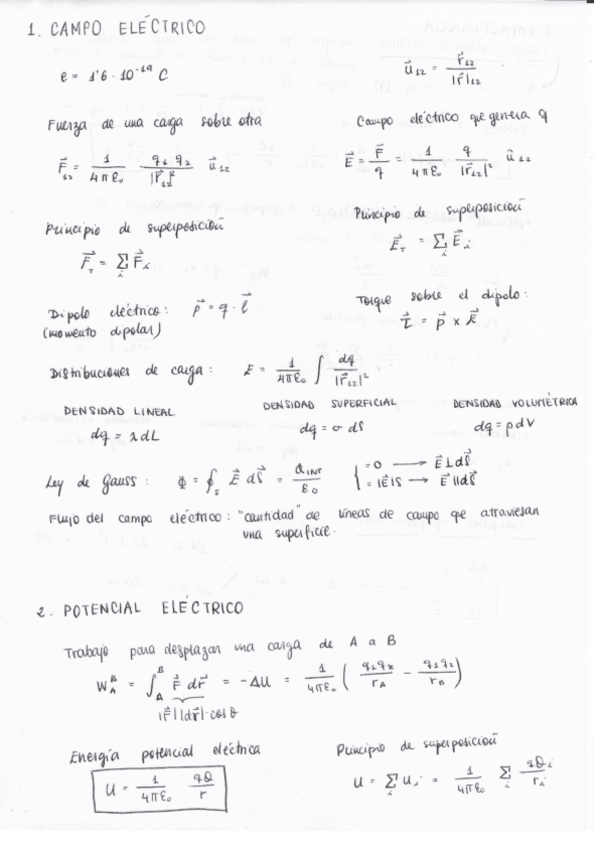 1. CAMPO ELÉCTRICO
e = 1'6 · 10⁻¹⁹ C
u⃗₁₂ = r⃗₁₂ / |r⃗|₁₂
Fuerza de una carga sobre otra
F⃗₁₂ = 1/(4πε₀) · q₁·q₂/|r⃗₁₂|² u⃗₁₂
Campo eléctrico que genera q
E⃗ = F⃗/q = 1/(4πε₀) q/|r⃗₁₂|² û₁₂
Principio de superposición
F⃗ₜ = Σᵢ F⃗ᵢ
Principio de superposición
E⃗ₜ = Σᵢ E⃗ᵢ
Dipolo eléctrico: p⃗ = q · l⃗
(momento dipolar)
Torque sobre el dipolo:
τ⃗ = p⃗ × E⃗
Distribuciones de carga: E = 1/(4πε₀) ∫ dq/|r⃗₁₂|²
DENSIDAD LINEAL
dq = λ dL
DENSIDAD SUPERFICIAL
dq = σ dS
DENSIDAD VOLUMÉTRICA
dq = ρ dV
Ley de Gauss: Φ = ∮ₛ E⃗ dS⃗ = Q_INT/ε₀ { = 0 → E⃗ ⊥ dS⃗
= |E⃗|S → E⃗ || dS⃗
Flujo del campo eléctrico: "cantidad" de líneas de campo que atraviesan
una superficie.
2. POTENCIAL ELÉCTRICO
Trabajo para desplazar una carga de A a B
W_A^B = ∫_A^B F⃗ dr⃗ = -ΔU = 1/(4πε₀) ( q₁q₂/r_A - q₁q₂/r_B )
|F⃗||dr⃗|·cos θ
Energía potencial eléctrica
U = 1/(4πε₀) qQ/r
Principio de superposición
U = Σᵢ Uᵢ = 1/(4πε₀) Σᵢ qQᵢ/rᵢ